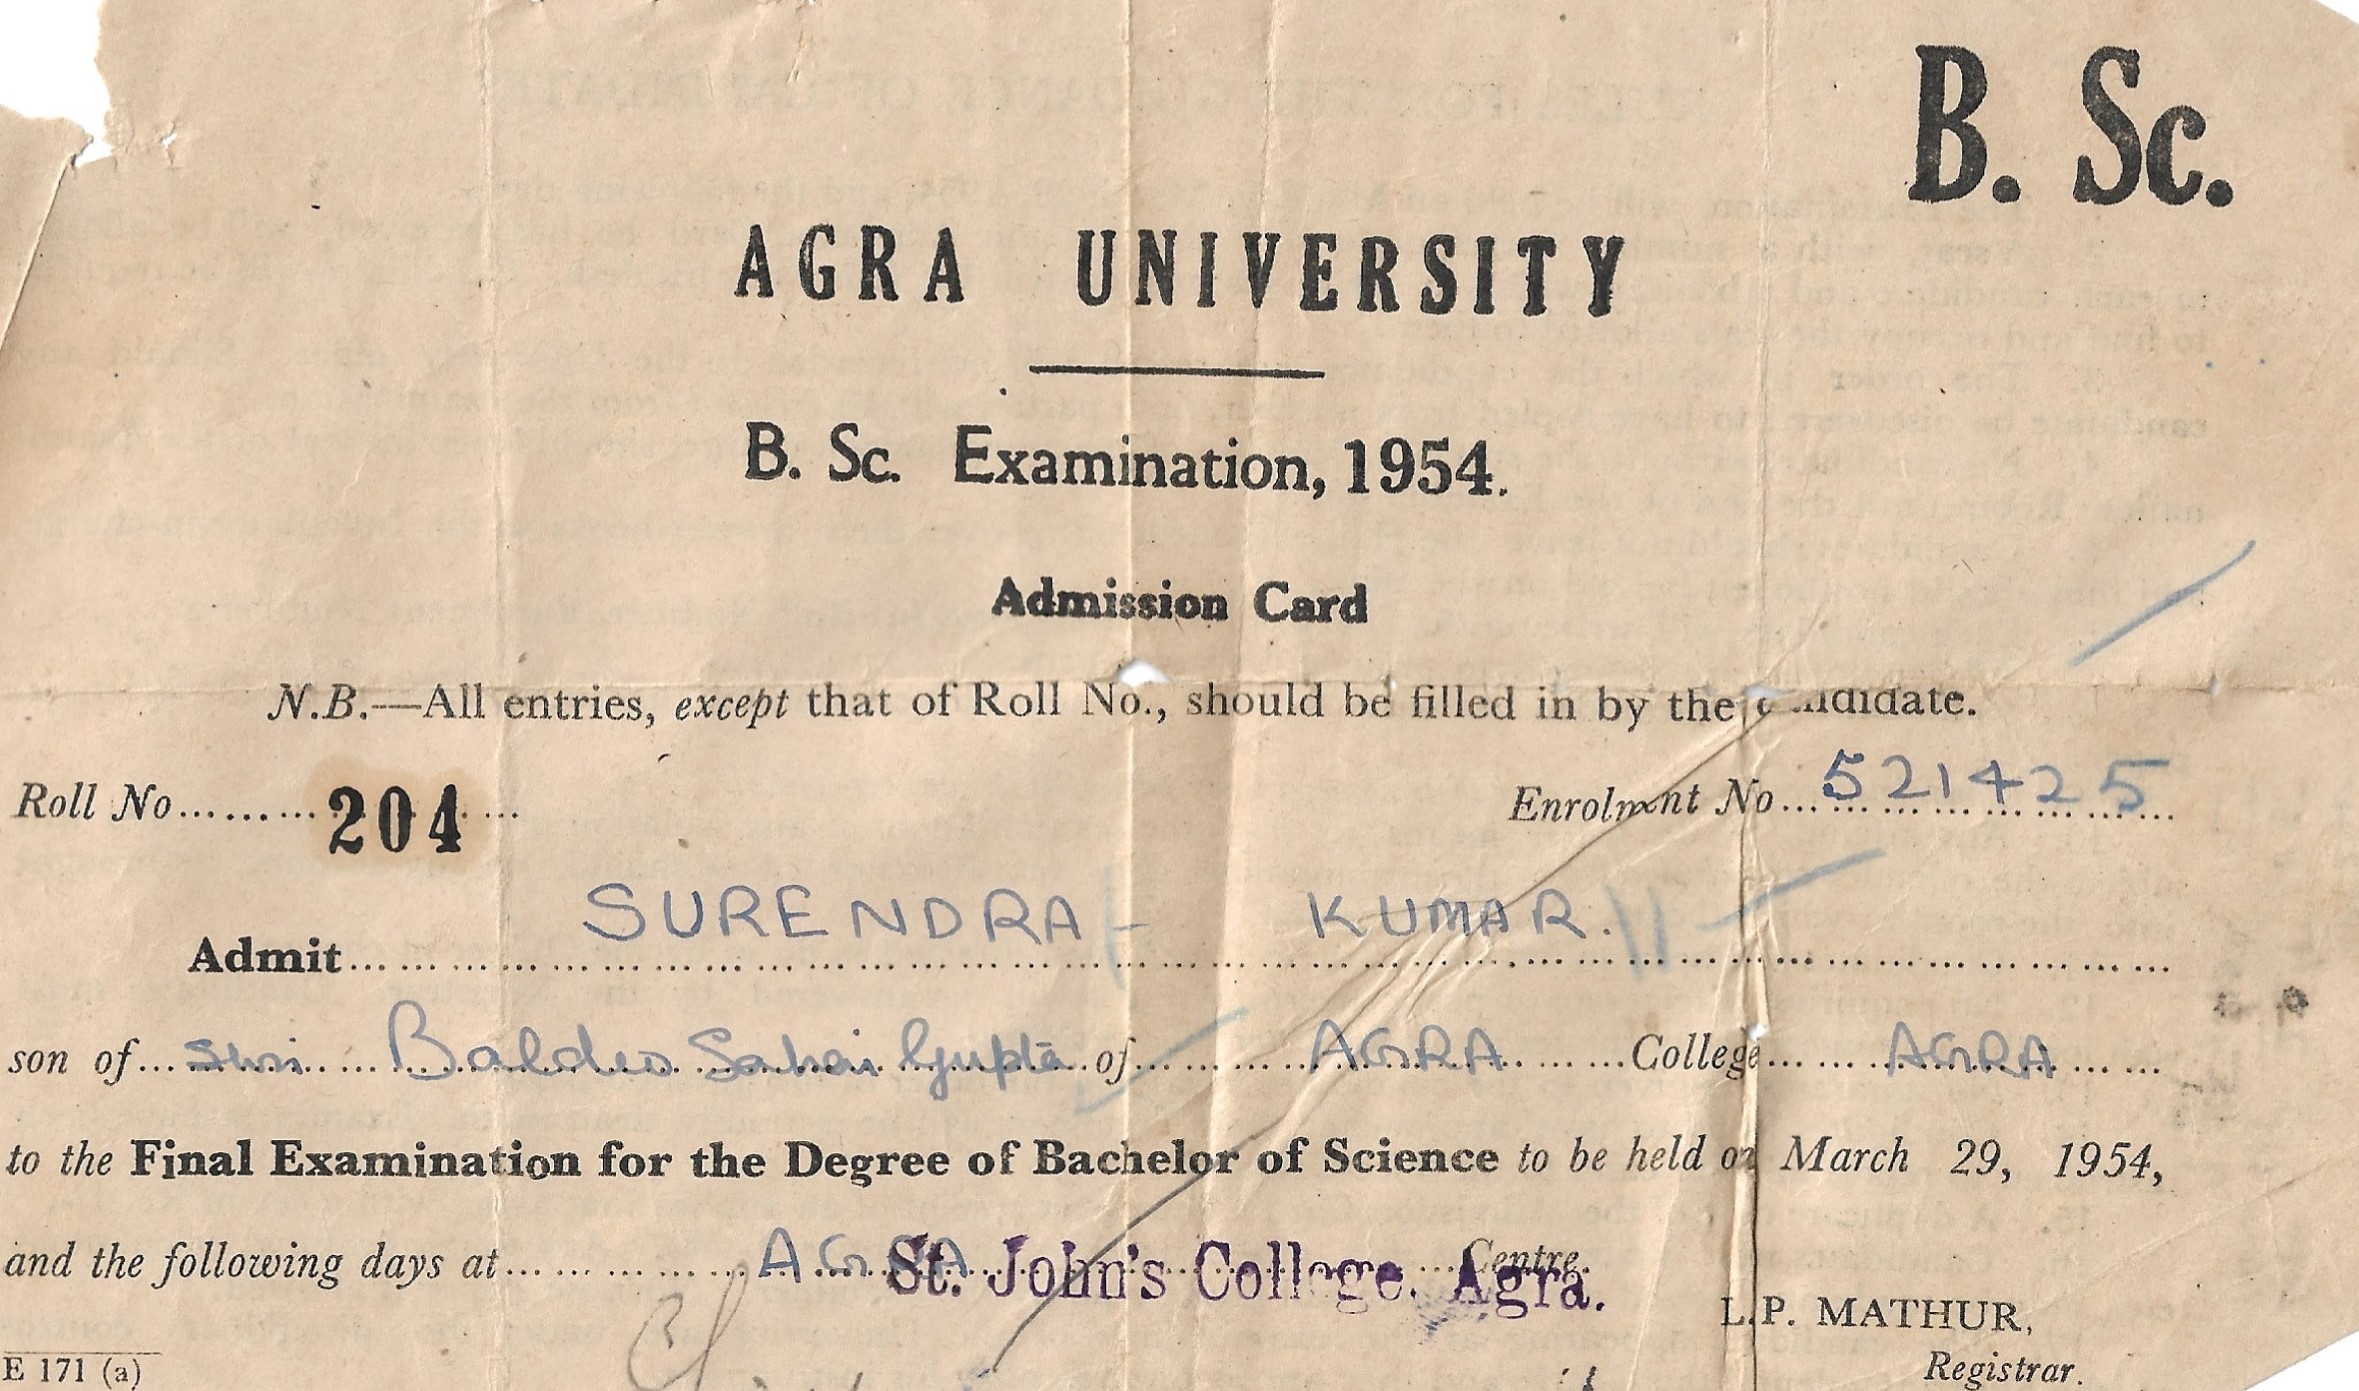 B. Sc.
AGRA UNIVERSITY
B. Sc. Examination, 1954.
Admission Card
N.B.—All entries, except that of Roll No., should be filled in by the candidate.
Roll No......... 204 ... Enrolment No... 521425
Admit... SURENDRA - KUMAR.
son of... Shri Baldeo Sahai Gupta of... AGRA ...College... AGRA
to the Final Examination for the Degree of Bachelor of Science to be held on March 29, 1954,
and the following days at... AGRA ...Centre.
St. John's College, Agra.
L.P. MATHUR,
E 171 (a) Registrar.